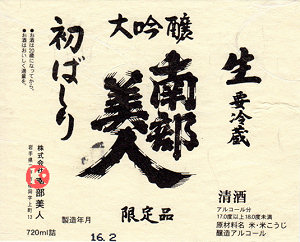 大吟醸
生
要冷蔵
南部
美人
初ばしり
●お酒は20歳になってから。
●お酒はおいしく適量を。
株式会社 南部美人
岩手県
720ml詰
製造年月
16.2
限定品
清酒
アルコール分
17.0度以上18.0度未満
原材料名 米・米こうじ
醸造アルコール